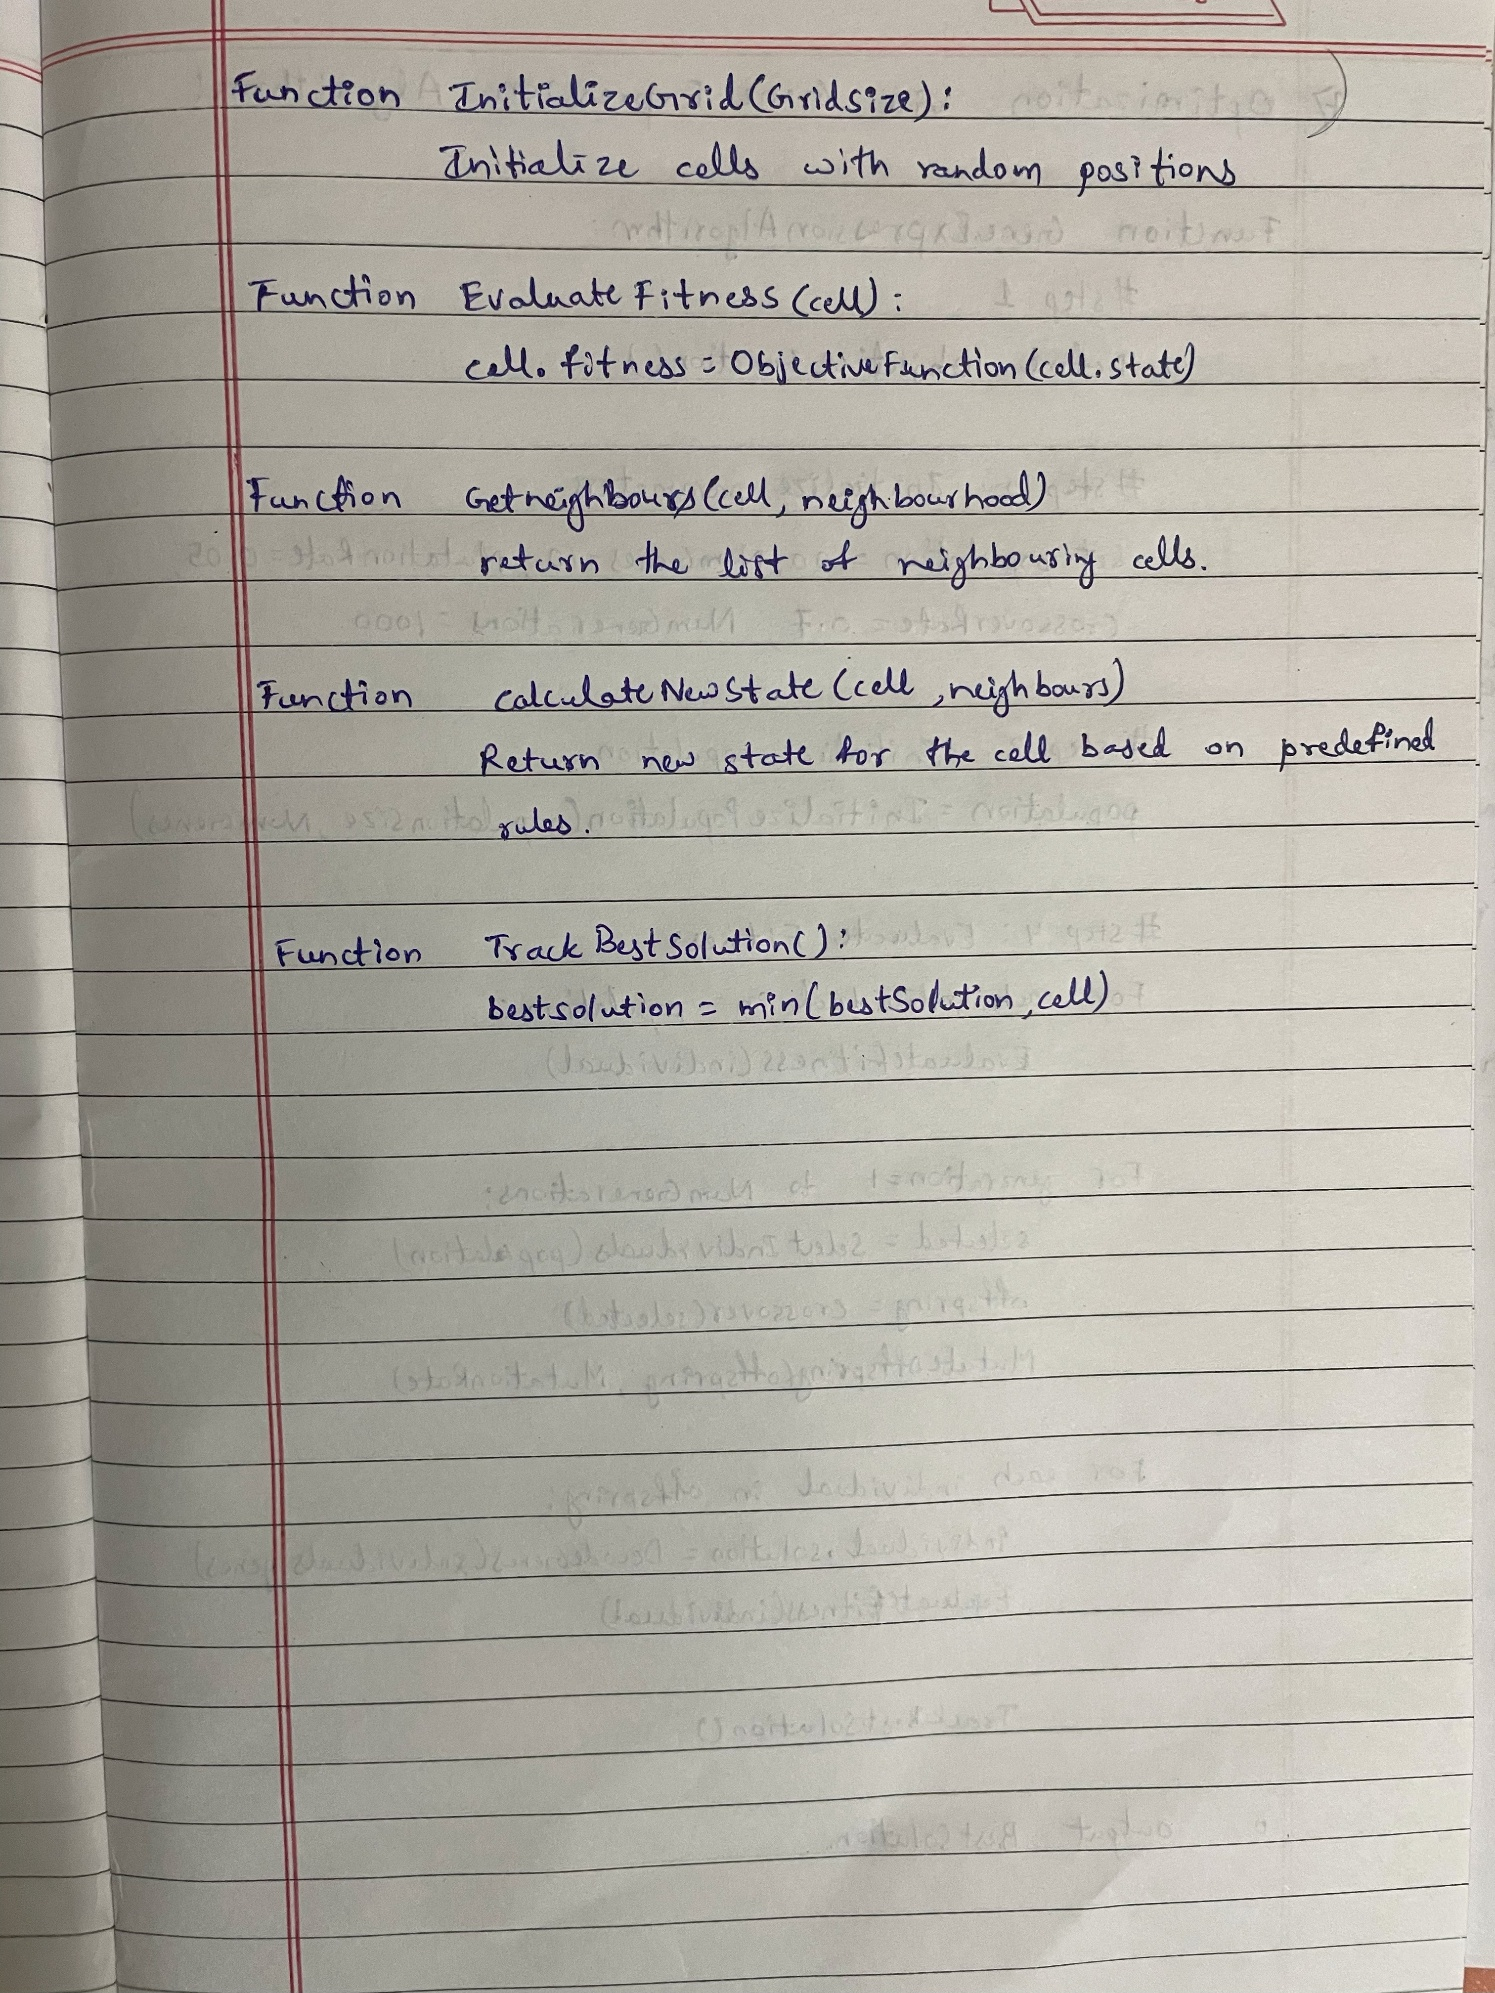 Function InitializeGrid(Gridsize):
Initialize cells with random positions
Function EvaluateFitness(cell):
cell.fitness = ObjectiveFunction(cell.state)
Function Getneighbours(cell, neighbourhood)
return the list of neighbouring cells.
Function calculateNewState(cell, neighbours)
Return new state for the cell based on predefined
rules.
Function TrackBestSolution():
bestsolution = min(bestSolution, cell)